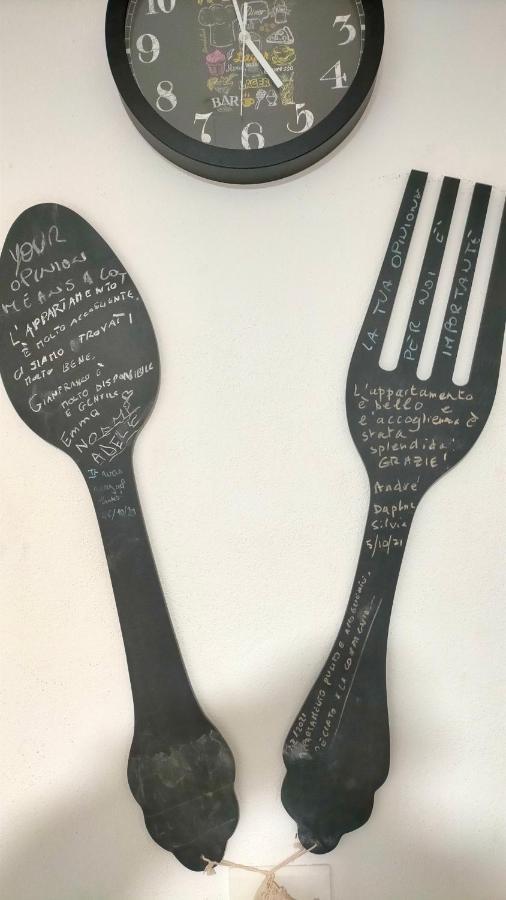 10
9
8
7
6
5
4
3
BAR
YOUR
OPINION
MEANS A LOT
L'APPARTAMENTO
È MOLTO ACCOGLIENTE.
CI SIAMO TROVATI
MOLTO BENE.
GIANFRANCO È
MOLTO DISPONIBILE
E GENTILE
EMMA
NOEMI
ADELE
It was
LA TUA OPINIONE
PER NOI È
IMPORTANTE
L'appartamento
è bello e
l'accoglienza è
stata
splendida!
GRAZIE!
André
Daphne
Silvia
5/10/21
APPARTAMENTO PULITO E